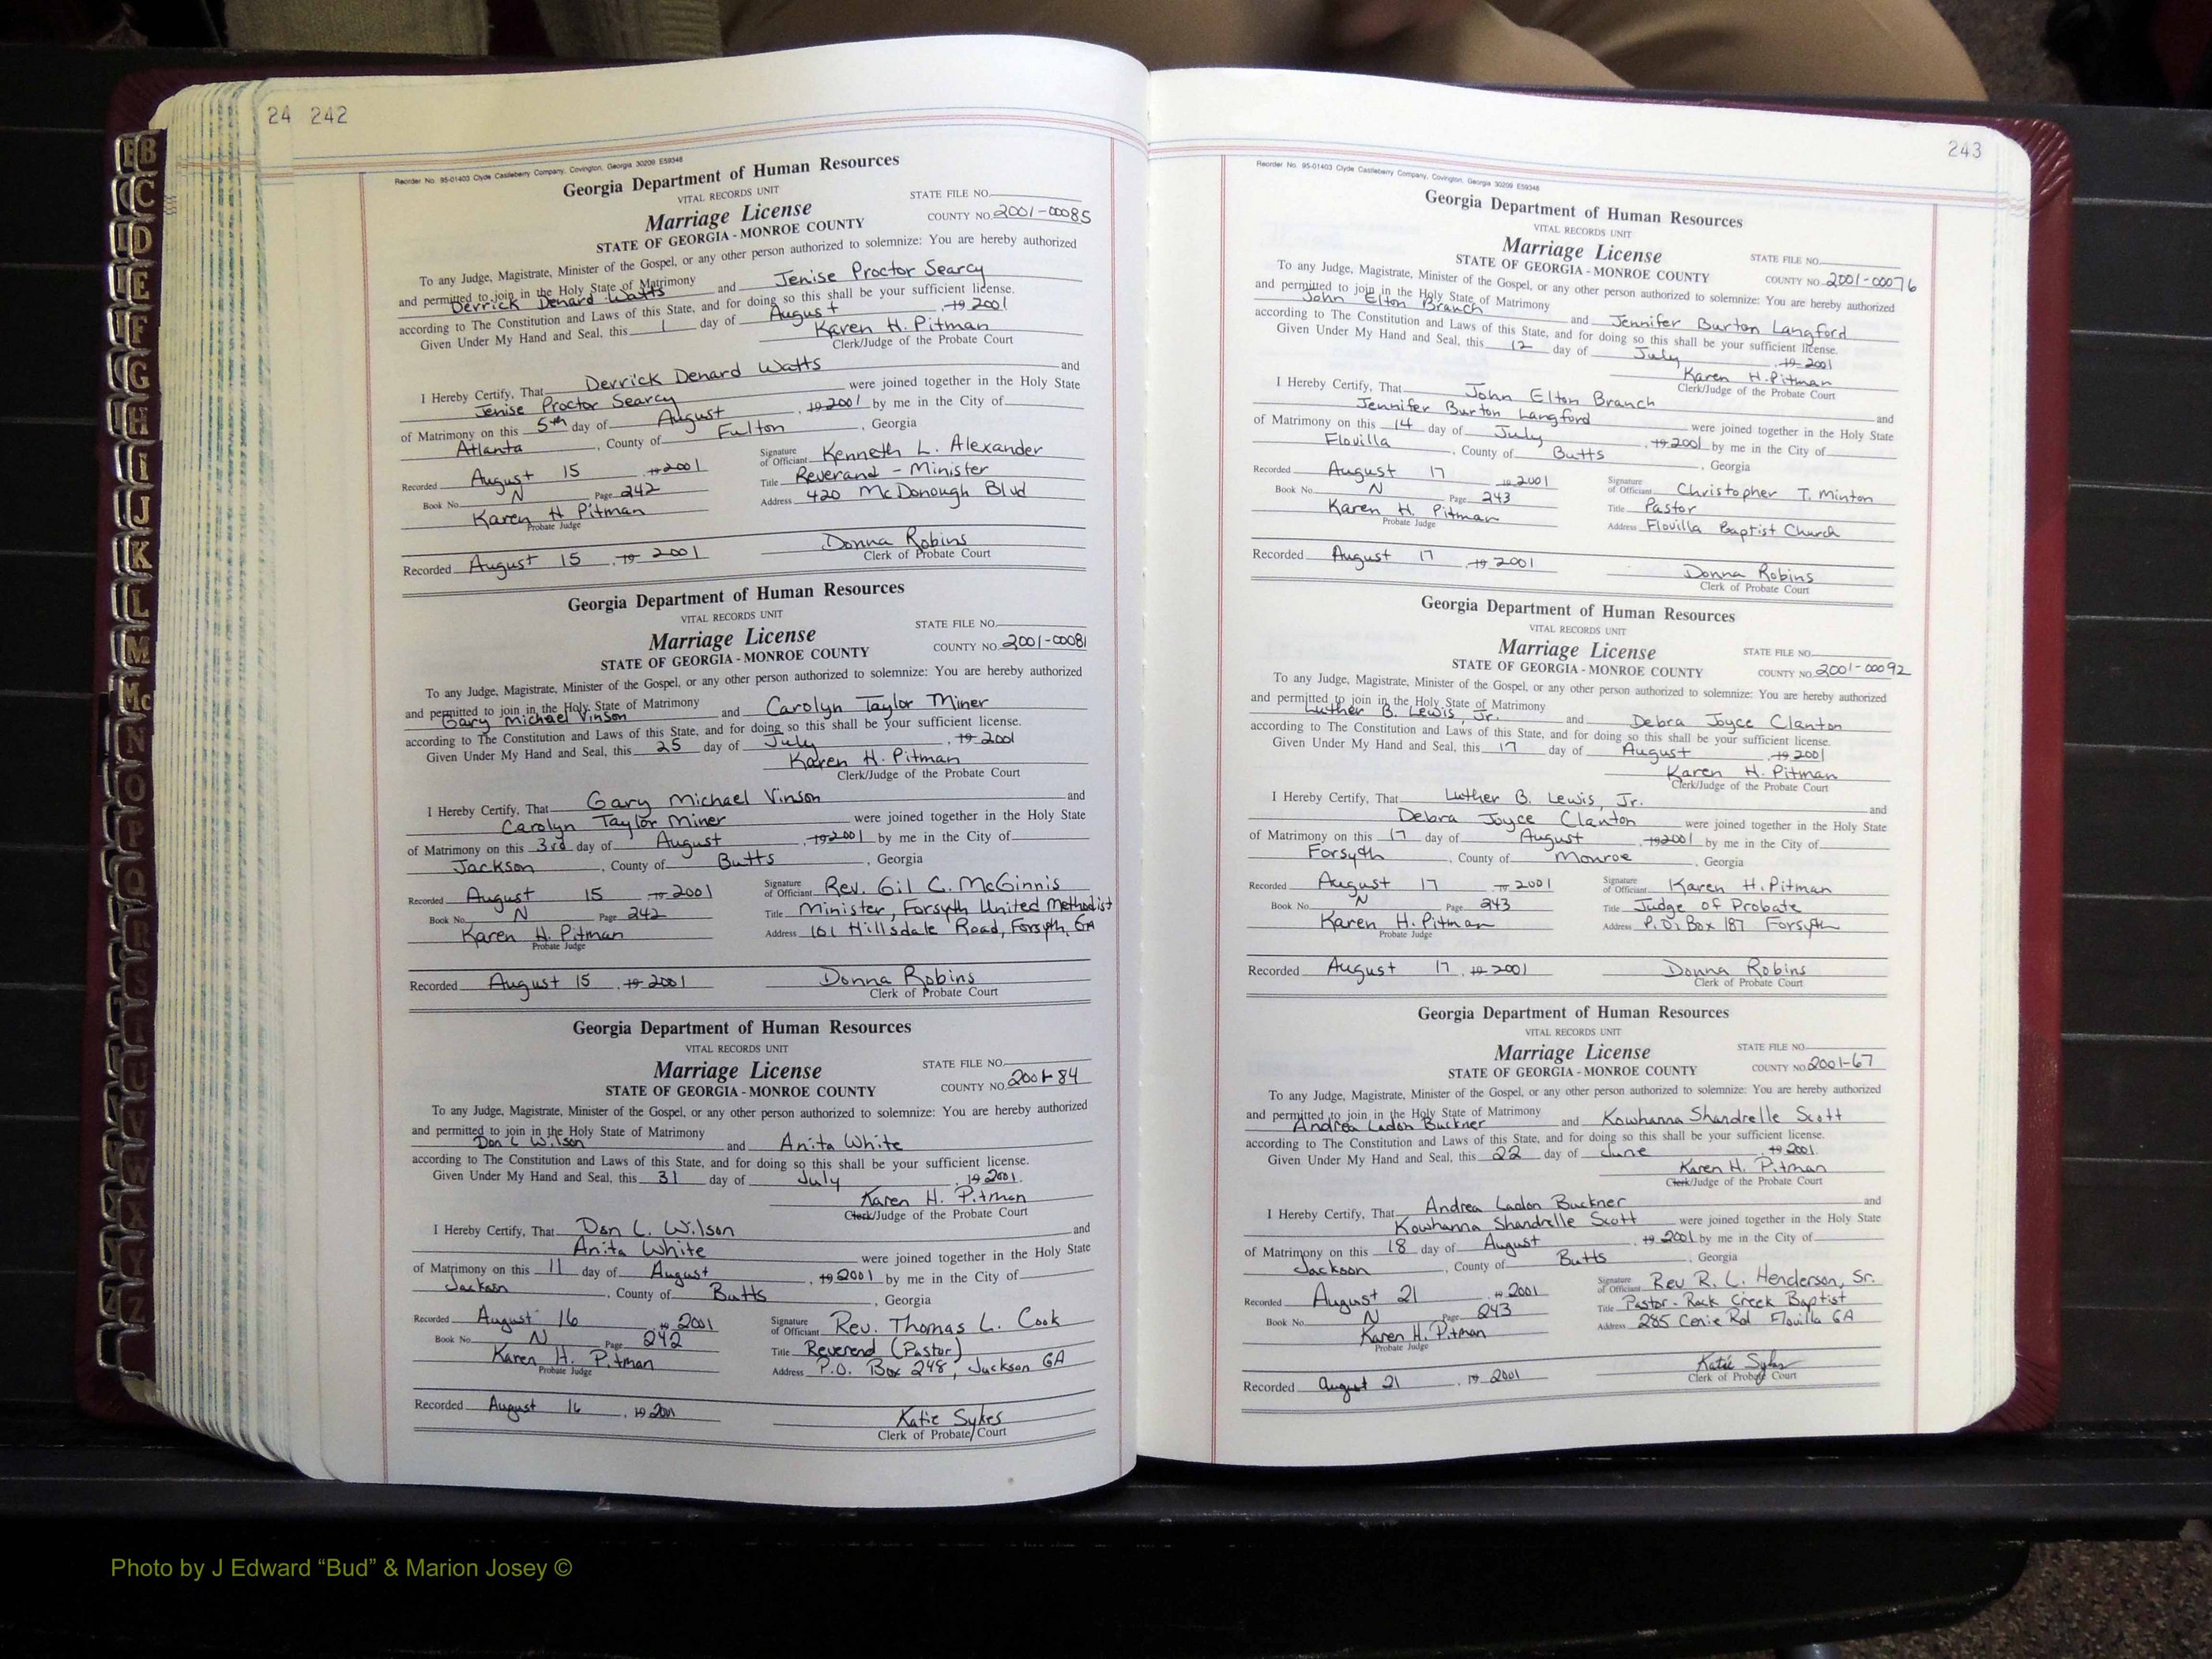 24 242
Reorder No. 95-01403 Clyde Castleberry Company, Covington, Georgia 30209 E59348
Georgia Department of Human Resources
VITAL RECORDS UNIT
STATE FILE NO.
Marriage License
COUNTY NO. 2001-00085
STATE OF GEORGIA - MONROE COUNTY
To any Judge, Magistrate, Minister of the Gospel, or any other person authorized to solemnize: You are hereby authorized
and permitted to join in the Holy State of Matrimony
Derrick Denard Watts and Jenise Proctor Searcy
according to The Constitution and Laws of this State, and for doing so this shall be your sufficient license.
Given Under My Hand and Seal, this 1 day of August, 19 2001
Karen H. Pitman
Clerk/Judge of the Probate Court
I Hereby Certify, That Derrick Denard Watts and
Jenise Proctor Searcy were joined together in the Holy State
of Matrimony on this 5th day of August, 19 2001 by me in the City of
Atlanta, County of Fulton, Georgia
Recorded August 15 19 2001 Signature of Officiant Kenneth L. Alexander
Book No. N Page 242 Title Reverand - Minister
Karen H Pitman Address 420 McDonough Blvd
Probate Judge
Recorded August 15, 19 2001 Donna Robins
Clerk of Probate Court
Georgia Department of Human Resources
VITAL RECORDS UNIT
STATE FILE NO.
Marriage License
COUNTY NO. 2001-00081
STATE OF GEORGIA - MONROE COUNTY
To any Judge, Magistrate, Minister of the Gospel, or any other person authorized to solemnize: You are hereby authorized
and permitted to join in the Holy State of Matrimony
Gary Michael Vinson and Carolyn Taylor Miner
according to The Constitution and Laws of this State, and for doing so this shall be your sufficient license.
Given Under My Hand and Seal, this 25 day of July, 19 2001
Karen H. Pitman
Clerk/Judge of the Probate Court
I Hereby Certify, That Gary Michael Vinson and
Carolyn Taylor Miner were joined together in the Holy State
of Matrimony on this 3rd day of August, 19 2001 by me in the City of
Jackson, County of Butts, Georgia
Recorded August 15 19 2001 Signature of Officiant Rev. Gil C. McGinnis
Book No. N Page 242 Title Minister, Forsyth United Methodist
Karen H. Pitman Address 161 Hillsdale Road, Forsyth, GA
Probate Judge
Recorded August 15, 19 2001 Donna Robins
Clerk of Probate Court
Georgia Department of Human Resources
VITAL RECORDS UNIT
STATE FILE NO.
Marriage License
COUNTY NO. 2001-84
STATE OF GEORGIA - MONROE COUNTY
To any Judge, Magistrate, Minister of the Gospel, or any other person authorized to solemnize: You are hereby authorized
and permitted to join in the Holy State of Matrimony
Don L Wilson and Anita White
according to The Constitution and Laws of this State, and for doing so this shall be your sufficient license.
Given Under My Hand and Seal, this 31 day of July, 19 2001.
Karen H. Pitman
Clerk/Judge of the Probate Court
I Hereby Certify, That Don L. Wilson and
Anita White were joined together in the Holy State
of Matrimony on this 11 day of August, 19 2001 by me in the City of
Jackson, County of Butts, Georgia
Recorded August 16 19 2001 Signature of Officiant Rev. Thomas L. Cook
Book No. N Page 242 Title Reverend (Pastor)
Karen H. Pitman Address P.O. Box 248, Jackson GA
Probate Judge
Recorded August 16, 19 2001 Katie Sykes
Clerk of Probate Court
243
Reorder No. 95-01403 Clyde Castleberry Company, Covington, Georgia 30209 E59348
Georgia Department of Human Resources
VITAL RECORDS UNIT
Marriage License
STATE FILE NO.
STATE OF GEORGIA - MONROE COUNTY
COUNTY NO. 2001-00076
To any Judge, Magistrate, Minister of the Gospel, or any other person authorized to solemnize: You are hereby authorized
and permitted to join in the Holy State of Matrimony
John Elton Branch and Jennifer Burton Langford
according to The Constitution and Laws of this State, and for doing so this shall be your sufficient license.
Given Under My Hand and Seal, this 12 day of July, 19 2001
Karen H. Pitman
Clerk/Judge of the Probate Court
I Hereby Certify, That John Elton Branch and
Jennifer Burton Langford were joined together in the Holy State
of Matrimony on this 14 day of July, 19 2001 by me in the City of
Flovilla, County of Butts, Georgia
Recorded August 17 19 2001 Signature of Officiant Christopher T. Minton
Book No. N Page 243 Title Pastor
Karen H. Pitman Address Flovilla Baptist Church
Probate Judge
Recorded August 17, 19 2001 Donna Robins
Clerk of Probate Court
Georgia Department of Human Resources
VITAL RECORDS UNIT
Marriage License
STATE FILE NO.
STATE OF GEORGIA - MONROE COUNTY
COUNTY NO. 2001-00092
To any Judge, Magistrate, Minister of the Gospel, or any other person authorized to solemnize: You are hereby authorized
and permitted to join in the Holy State of Matrimony
Luther B. Lewis, Jr. and Debra Joyce Clanton
according to The Constitution and Laws of this State, and for doing so this shall be your sufficient license.
Given Under My Hand and Seal, this 17 day of August, 19 2001
Karen H. Pitman
Clerk/Judge of the Probate Court
I Hereby Certify, That Luther B. Lewis, Jr. and
Debra Joyce Clanton were joined together in the Holy State
of Matrimony on this 17 day of August, 19 2001 by me in the City of
Forsyth, County of Monroe, Georgia
Recorded August 17 19 2001 Signature of Officiant Karen H. Pitman
Book No. N Page 243 Title Judge of Probate
Karen H. Pitman Address P.O. Box 187 Forsyth
Probate Judge
Recorded August 17, 19 2001 Donna Robins
Clerk of Probate Court
Georgia Department of Human Resources
VITAL RECORDS UNIT
Marriage License
STATE FILE NO.
STATE OF GEORGIA - MONROE COUNTY
COUNTY NO. 2001-67
To any Judge, Magistrate, Minister of the Gospel, or any other person authorized to solemnize: You are hereby authorized
and permitted to join in the Holy State of Matrimony
Andrea Ladon Buckner and Kowhanna Shandrelle Scott
according to The Constitution and Laws of this State, and for doing so this shall be your sufficient license.
Given Under My Hand and Seal, this 22 day of June, 19 2001.
Karen H. Pitman
Clerk/Judge of the Probate Court
I Hereby Certify, That Andrea Ladon Buckner and
Kowhanna Shandrelle Scott were joined together in the Holy State
of Matrimony on this 18 day of August, 19 2001 by me in the City of
Jackson, County of Butts, Georgia
Recorded August 21 19 2001 Signature of Officiant Rev R. L. Henderson, Sr.
Book No. N Page 243 Title Pastor - Rock Creek Baptist
Karen H. Pitman Address 285 Cenie Rd Flovilla GA
Probate Judge
Recorded August 21, 19 2001 Katie Sykes
Clerk of Probate Court
B
C
D
E
F
G
H
I
J
K
L
M
Mc
N
O
P
Q
R
S
T
U
V
W
X
Y
Z
Photo by J Edward “Bud” & Marion Josey ©